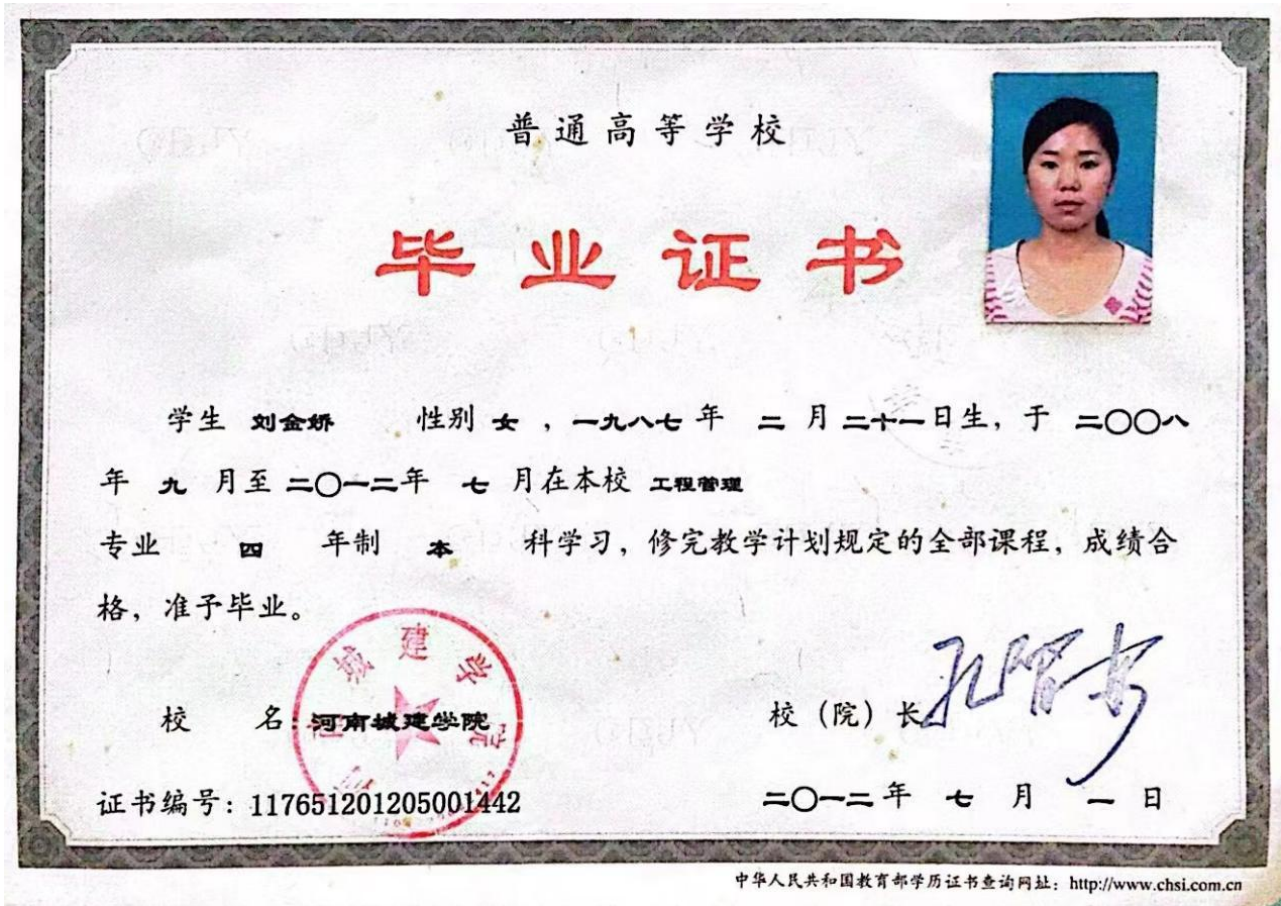 普通高等学校
毕业证书
学生 刘金娇 性别 女 ，一九八七 年 二 月 二十一 日生，于 二〇〇八
年 九 月至 二〇一二 年 七 月在本校 工程管理
专业 四 年制 本 科学习，修完教学计划规定的全部课程，成绩合
格，准予毕业。
城建学院
校 名：河南城建学院
校（院）长
证书编号：117651201205001442
二〇一二 年 七 月 一 日
中华人民共和国教育部学历证书查询网址：http://www.chsi.com.cn